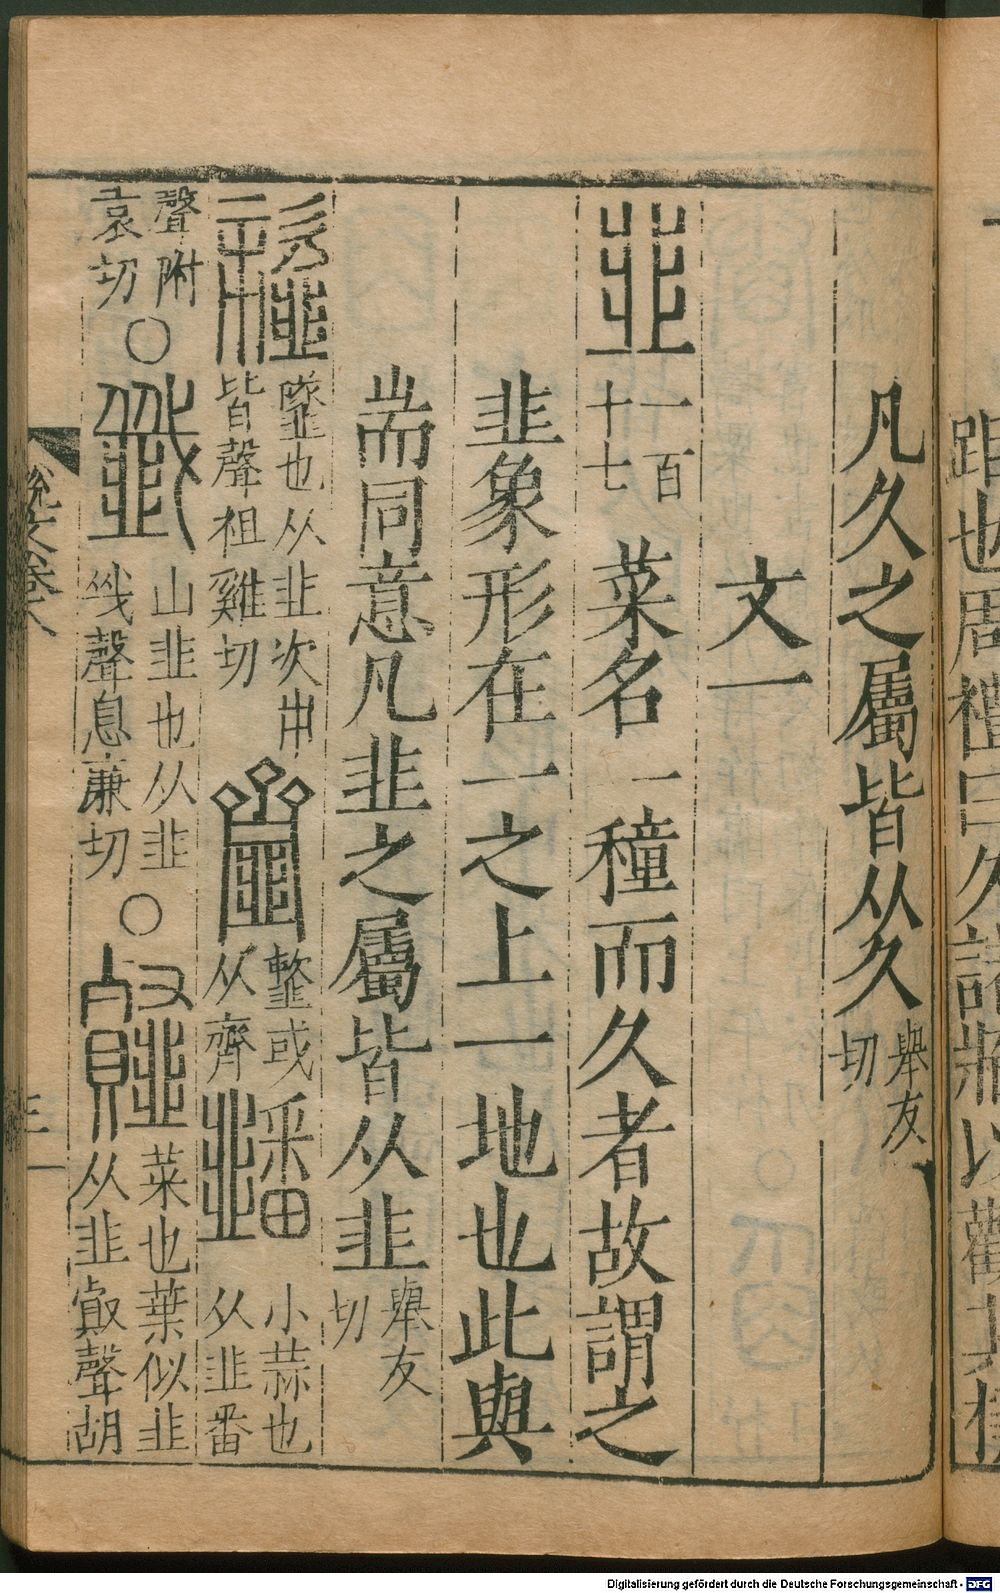 距也周禮曰久諸牆以觀其橈
凡久之屬皆从久舉友切
文一
韭一百十七菜名一種而久者故謂之
韭象形在一之上一地也此與
耑同意凡韭之屬皆从韭舉友切
䪡𩐋也从韭次𠂔皆聲祖雞切齏䪡或从齊䪤小蒜也从韭番
聲附袁切○韱山韭也从韭𢦏聲息廉切○䪥菜也葉似韭从韭㕡聲胡
說文卷八
Digitalisierung gefördert durch die Deutsche Forschungsgemeinschaft - DFG